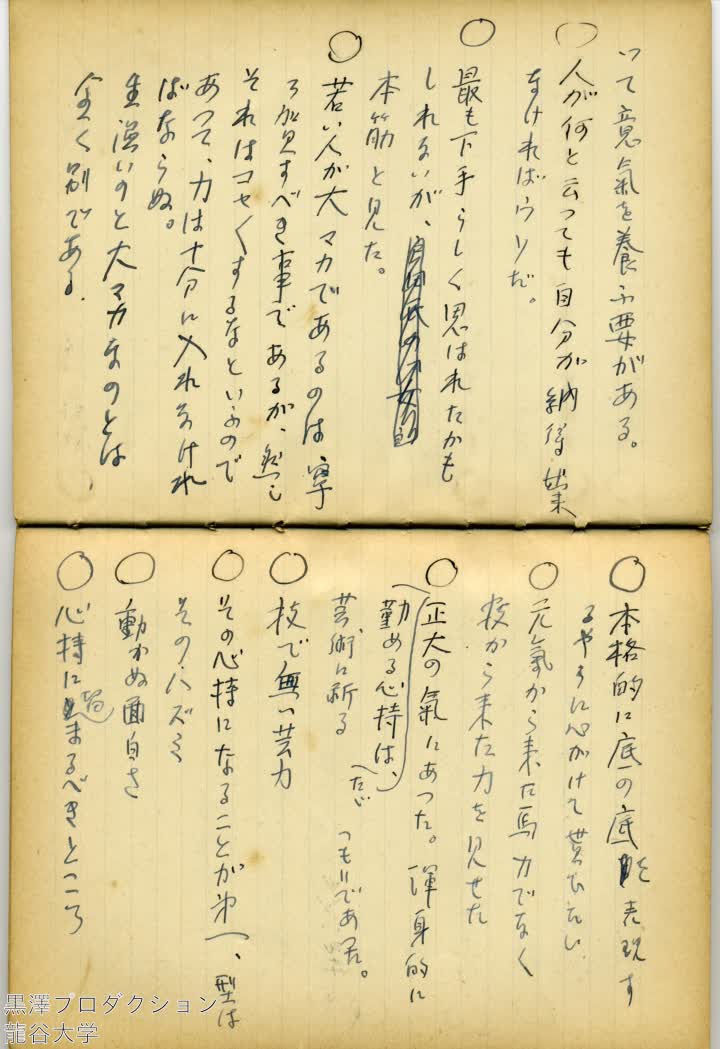 いて意氣を養ふ要がある。
○人が何と云つても自分が納得出来
なければウソだ。
○最も下手らしく思はれたかも
しれないが、
本筋と見た。
○若い人が大マカであるのは寧
ろ賀すべき事であるが、然し
それはコセくするなといふので
あつて、力は十分に入れなけれ
ばならぬ。
生温いのと大マカなのとは
全く別である。
○本格的に底の底を表現す
るやうに心がけて貰ひたい
○元氣から来た馬力でなく
技から来た力を見せた
○正大の氣にあつた。渾身的に
勤める心持は、
芸術に祈る つもりであつた。
へたい
○技で無い芸力
○その心持になることが第一、型は
そのハズミ
○動かぬ面白さ
○心持に留まるべきところ
黒澤プロダクション
龍谷大学